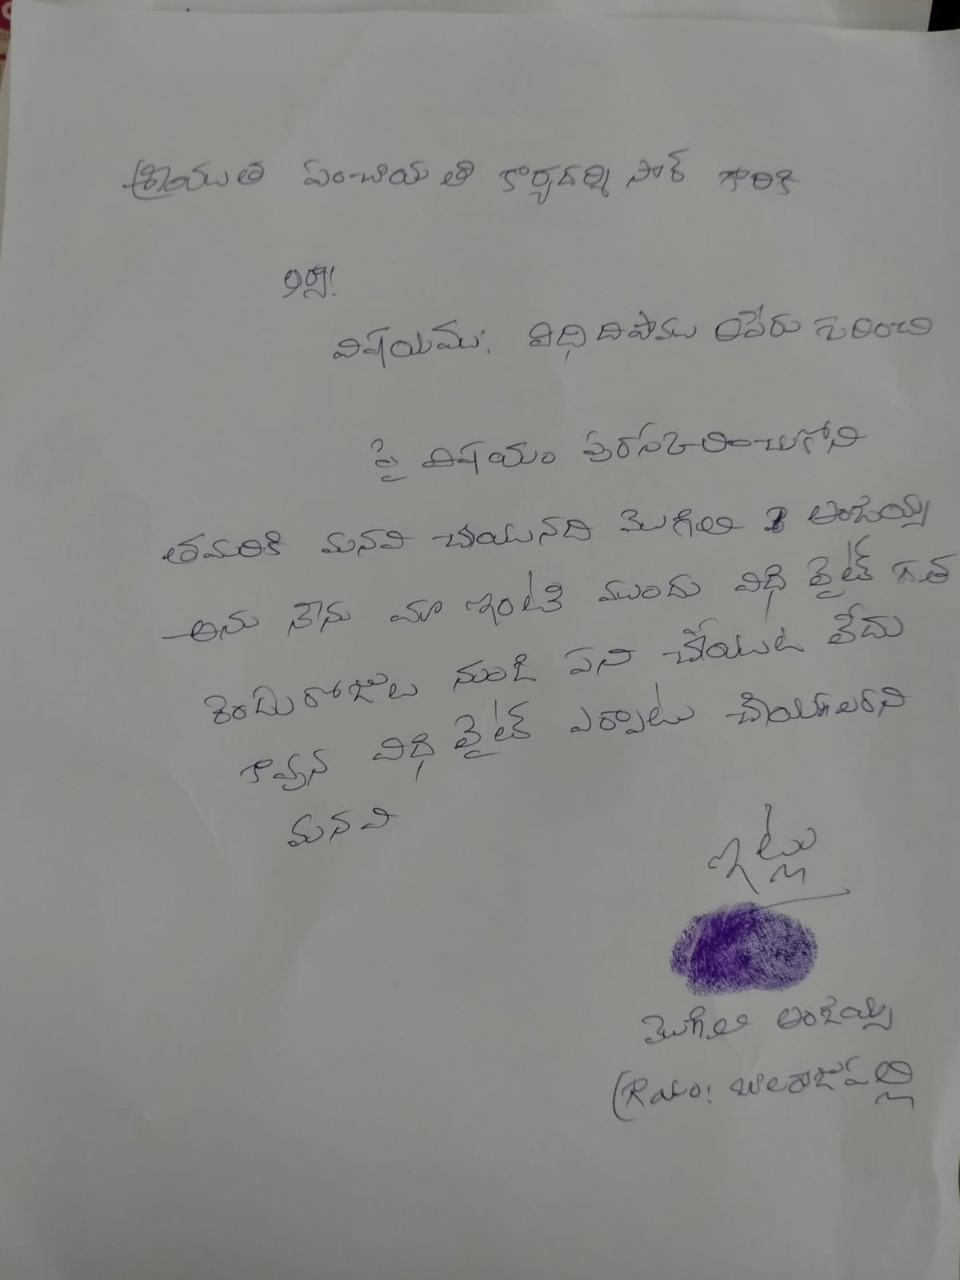 శ్రీయుత పంచాయతి కార్యదర్శి సార్ గారికి
విషయము: విధి దిపాము రిపేరు గురించి
పై విషయం పురస్కరించుకోని
తమరికి మనవి చేయునది మొగిలి అంజయ్య
అను నేను మా ఇంటి ముందు విధి లైట్ గత
రెండు రోజుల నుండి పని చేయుట లేదు
కావున విధి లైట్ ఎర్పాటు చేయాలరని
మనవి
ఇట్లు
మొగిలి అంజయ్య